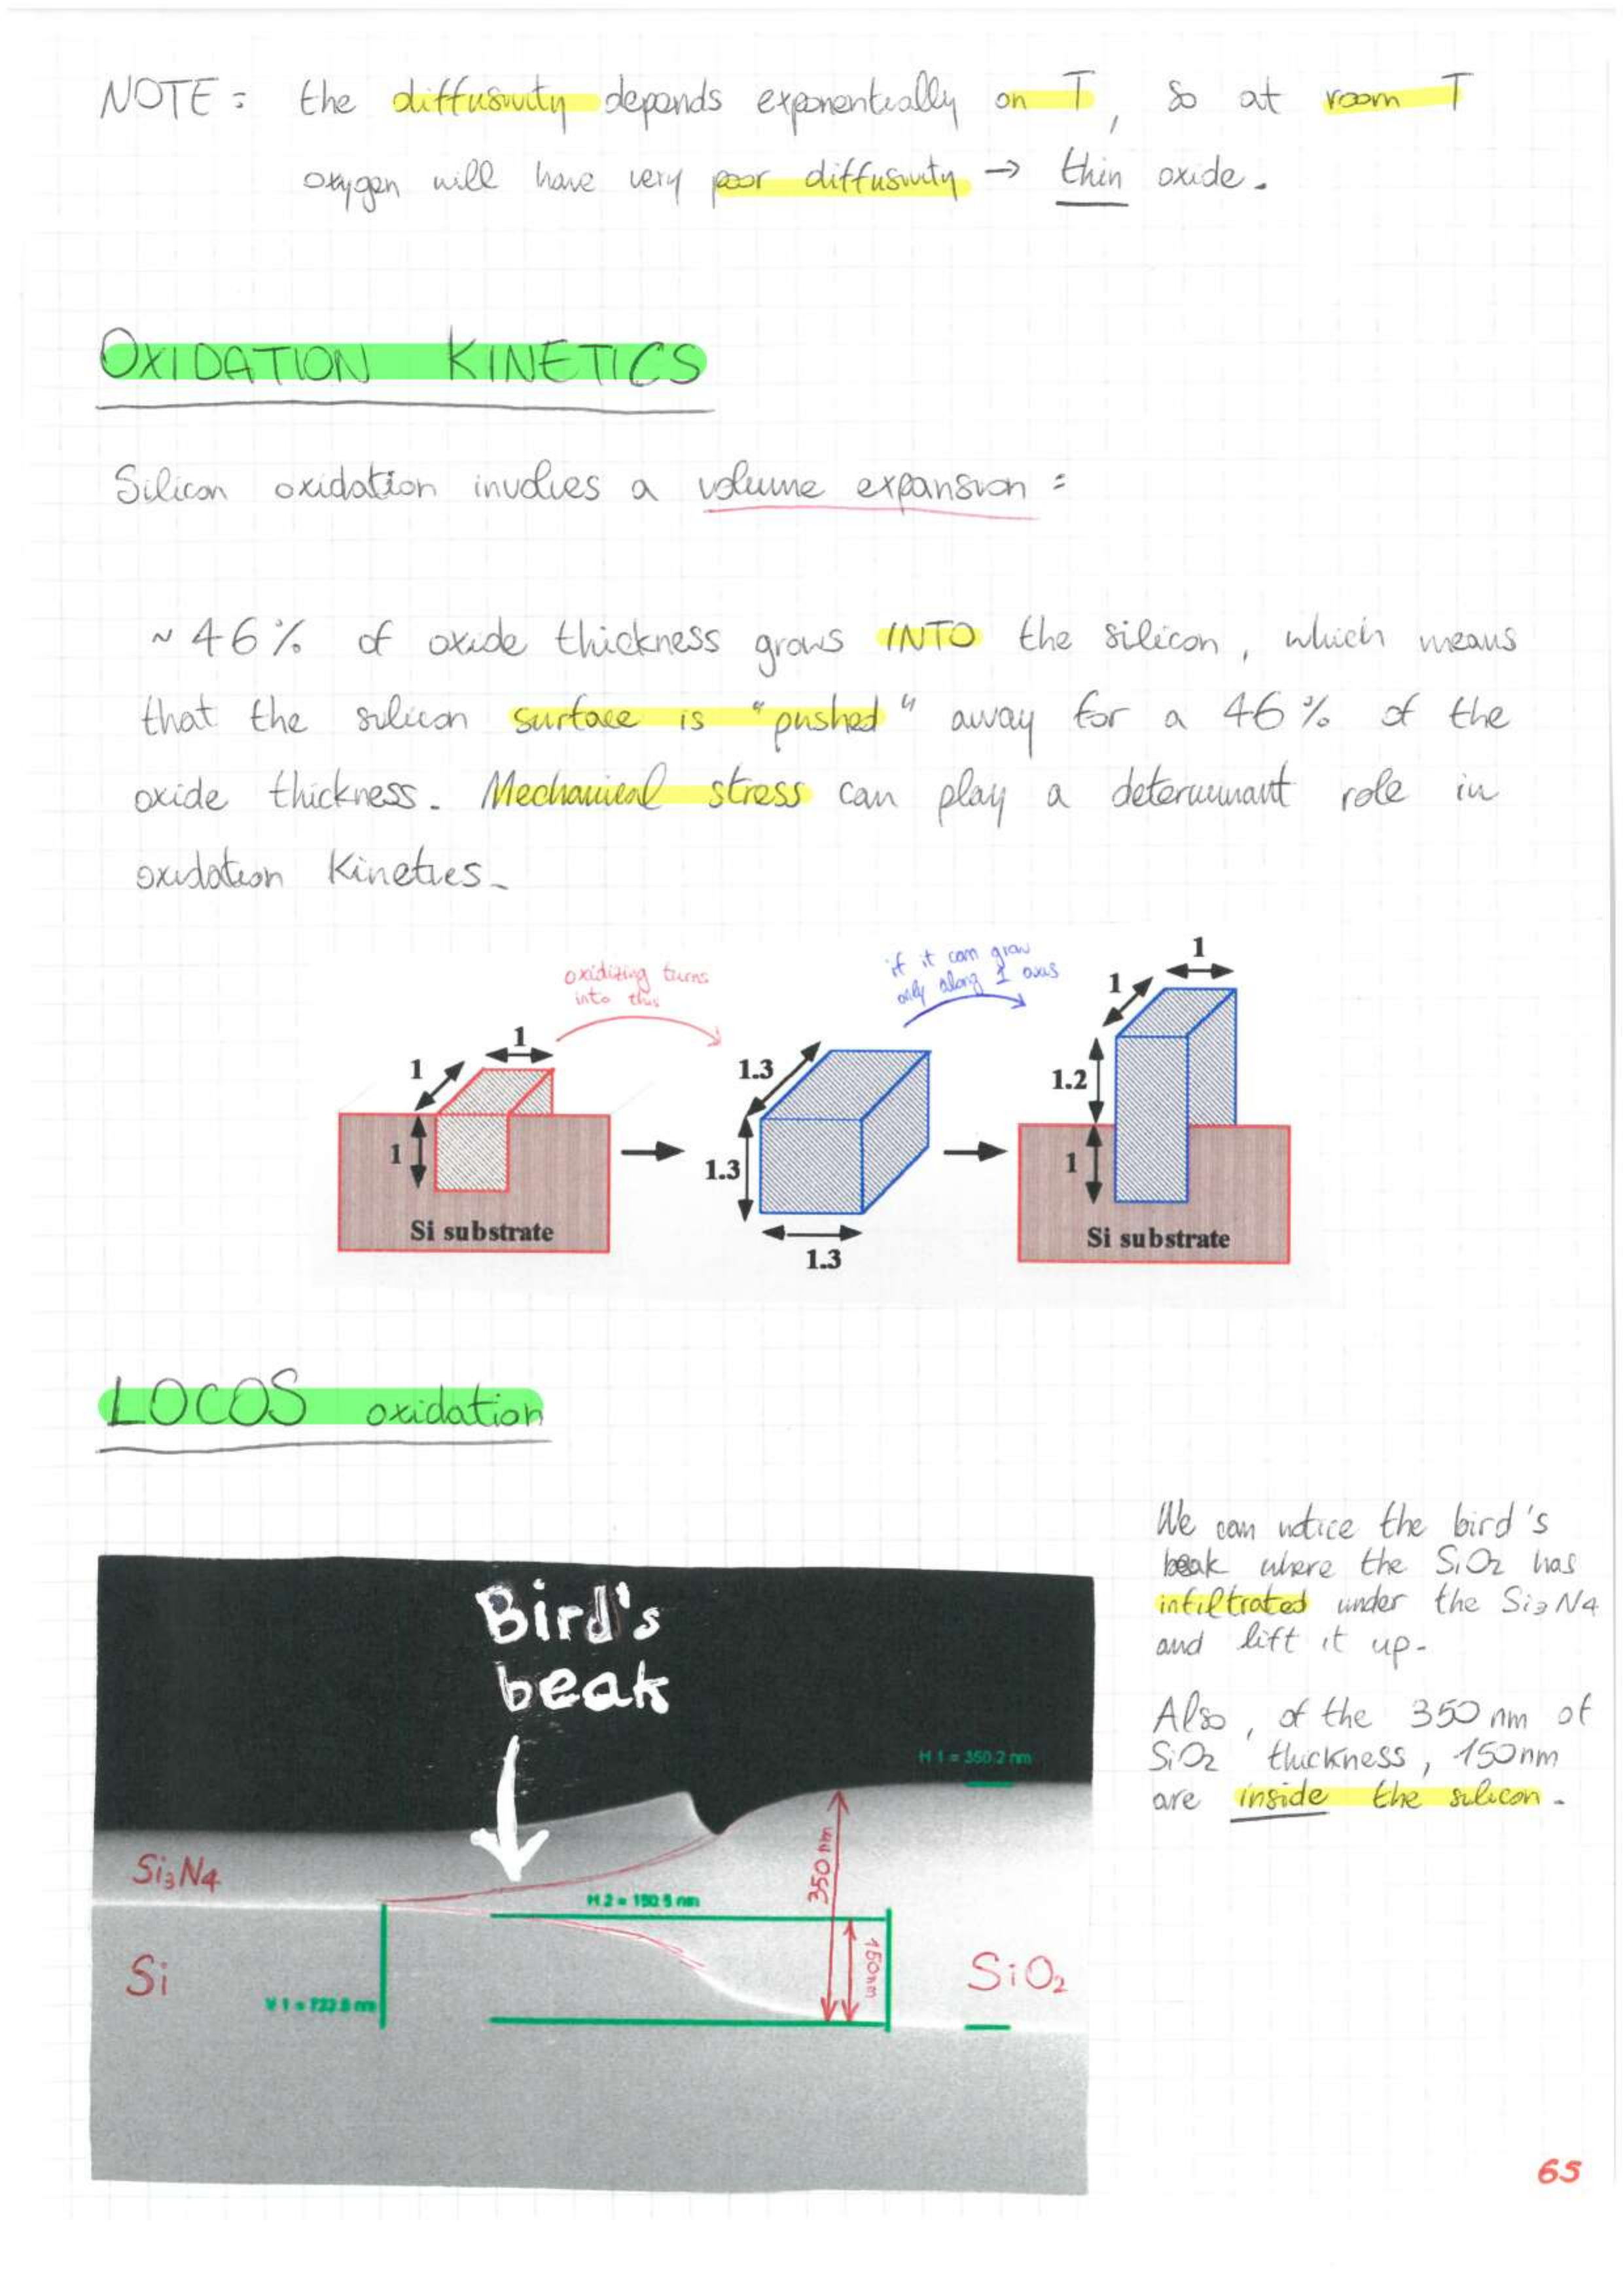 NOTE: the diffusivity depends exponentially on T, so at room T
oxygen will have very poor diffusivity → thin oxide.
OXIDATION KINETICS
Silicon oxidation involves a volume expansion:
~ 46% of oxide thickness grows INTO the silicon, which means
that the silicon surface is "pushed" away for a 46% of the
oxide thickness. Mechanical stress can play a determinant role in
oxidation kinetics.
oxidizing turns
into this
if it can grow
only along 1 axis
1
1
1
Si substrate
1.3
1.3
1.3
1
1
1.2
1
Si substrate
LOCOS oxidation
We can notice the bird's
beak where the SiO2 has
infiltrated under the Si3N4
and lift it up.
Also, of the 350 nm of
SiO2 thickness, 150nm
are inside the silicon.
Bird's
beak
H 1 = 350.2 nm
Si3N4
350 nm
H 2 = 150.5 nm
150nm
Si
SiO2
65